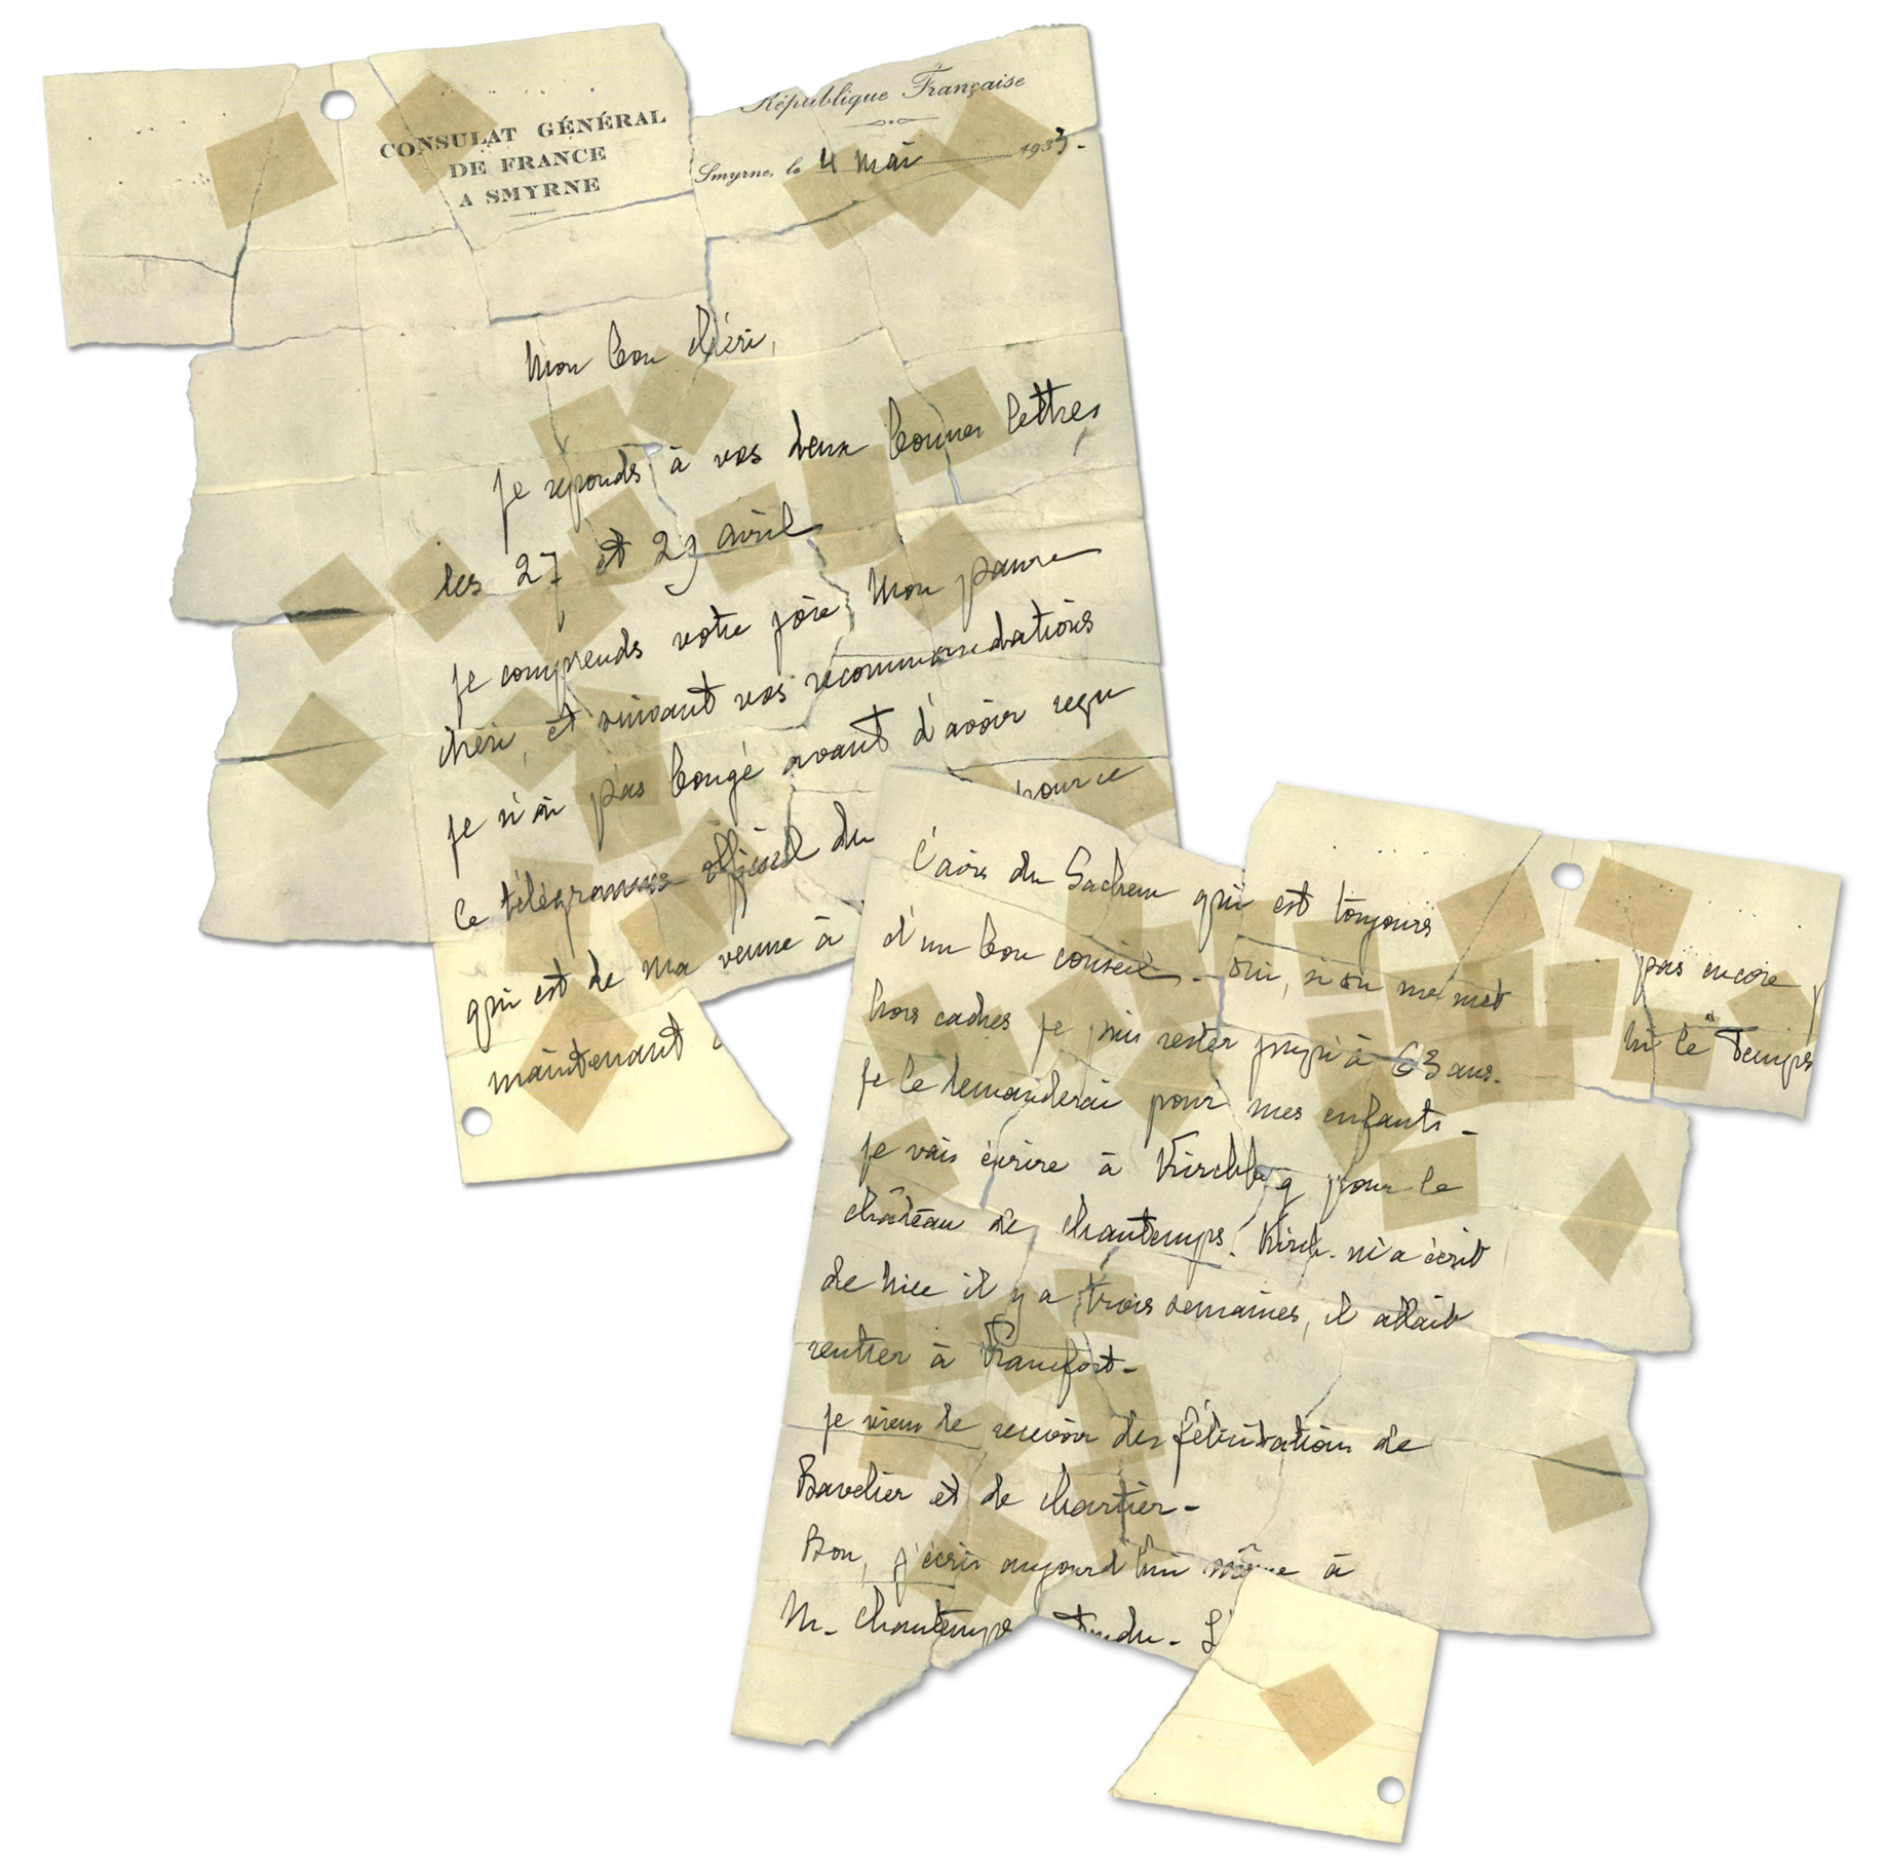 CONSULAT GÉNÉRAL
DE FRANCE
A SMYRNE
République Française
Smyrne, le 4 mai 1933.
Mon bon chéri,
Je réponds à vos deux bonnes lettres
les 27 et 29 avril
Je comprends votre joie, mon pauvre
chéri, et suivant vos recommandations
je n'ai pas bougé avant d'avoir reçu
le télégramme officiel du
pour ce
qui est de ma venue à
maintenant
l'avis du Sachem qui est toujours
d'un bon conseil - Oui, si on me met
hors cadres je puis rester jusqu'à 63 ans.
Je le demanderai pour mes enfants -
Je vais écrire à Kirchberg pour le
château de Chautemps. Kirch. m'a écrit
de Nice il y a trois semaines, il allait
rentrer à Francfort -
Je viens de recevoir des félicitations de
Bavelier et de Chartier -
Bon, j'écris aujourd'hui même à
M. Chautemps
pas encore
lu le Temps